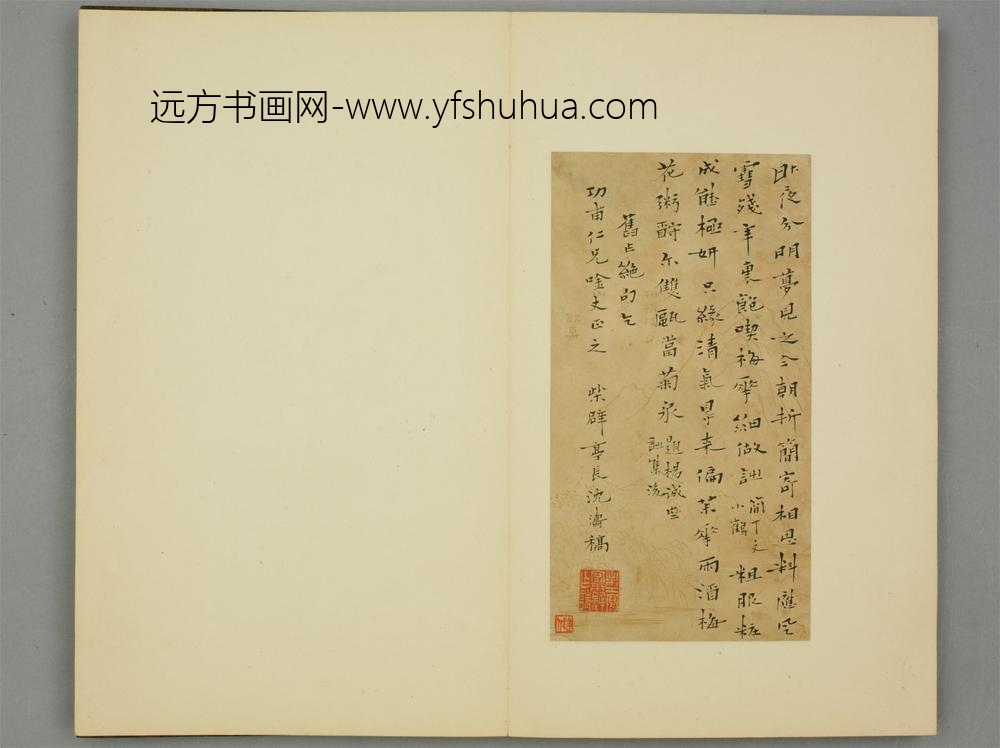 远方书画网-www.yfshuhua.com
昨夜分明夢見之今朝折簡寄相思料應風
雪殘年裏飽喫梅花細做詩 簡丁文
小鶴 粗服粧
成態極妍只緣清氣得來偏菜花雨酒梅
花粥酹尔雙甌當菊泉 題楊誠
詩集後
舊占絶句乞
功甫仁兄唫丈正之 柴辟亭長沈濤稿